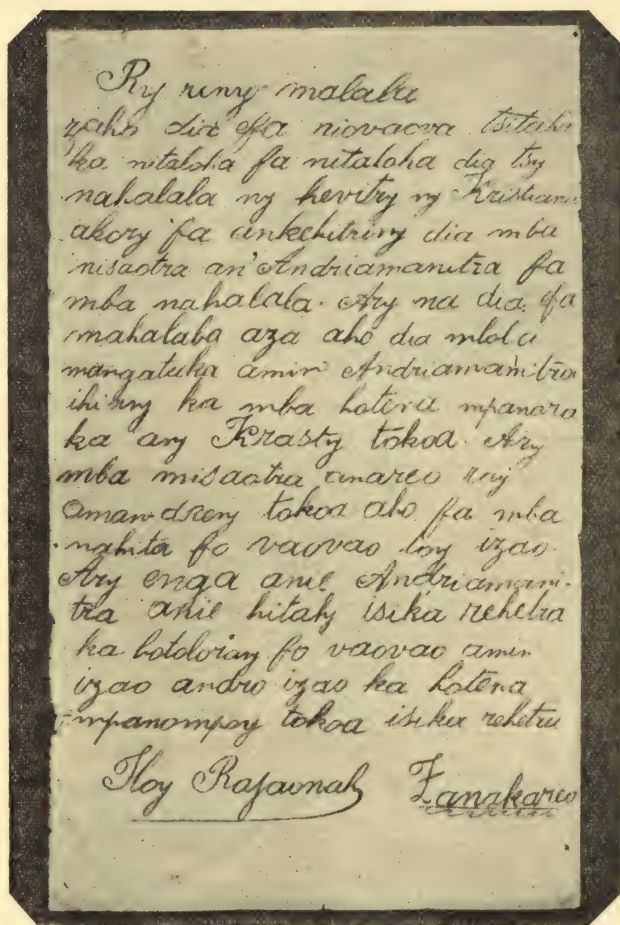 Ry reny malala
zaho dia efa niovaova tsitaha
ka nitaloha fa nitaloha dia tsy
nahalala ny hevitry ny Kristiana
akory fa ankehitriny dia mba
nisaotra an'Andriamanitra fa
mba nahalala. Ary na dia efa
mahalaba aza aho dia mbola
mangataka amin Andriamanitra
ihiany ka mba hotena mpanara
ka any Krasty tokoa. Ary
mba misaotra anareo ray
amandreny tokoa aho fa mba
nahita fo vaovao toy izao
Ary enga anie Andriamani-
tra anie hitahy isika rehetra
ka hotoloviany fo vaovao amin
izao andro izao ka hotena
mpanompoy tokoa isika rehetra
Hoy Rafaonah Zanakareo